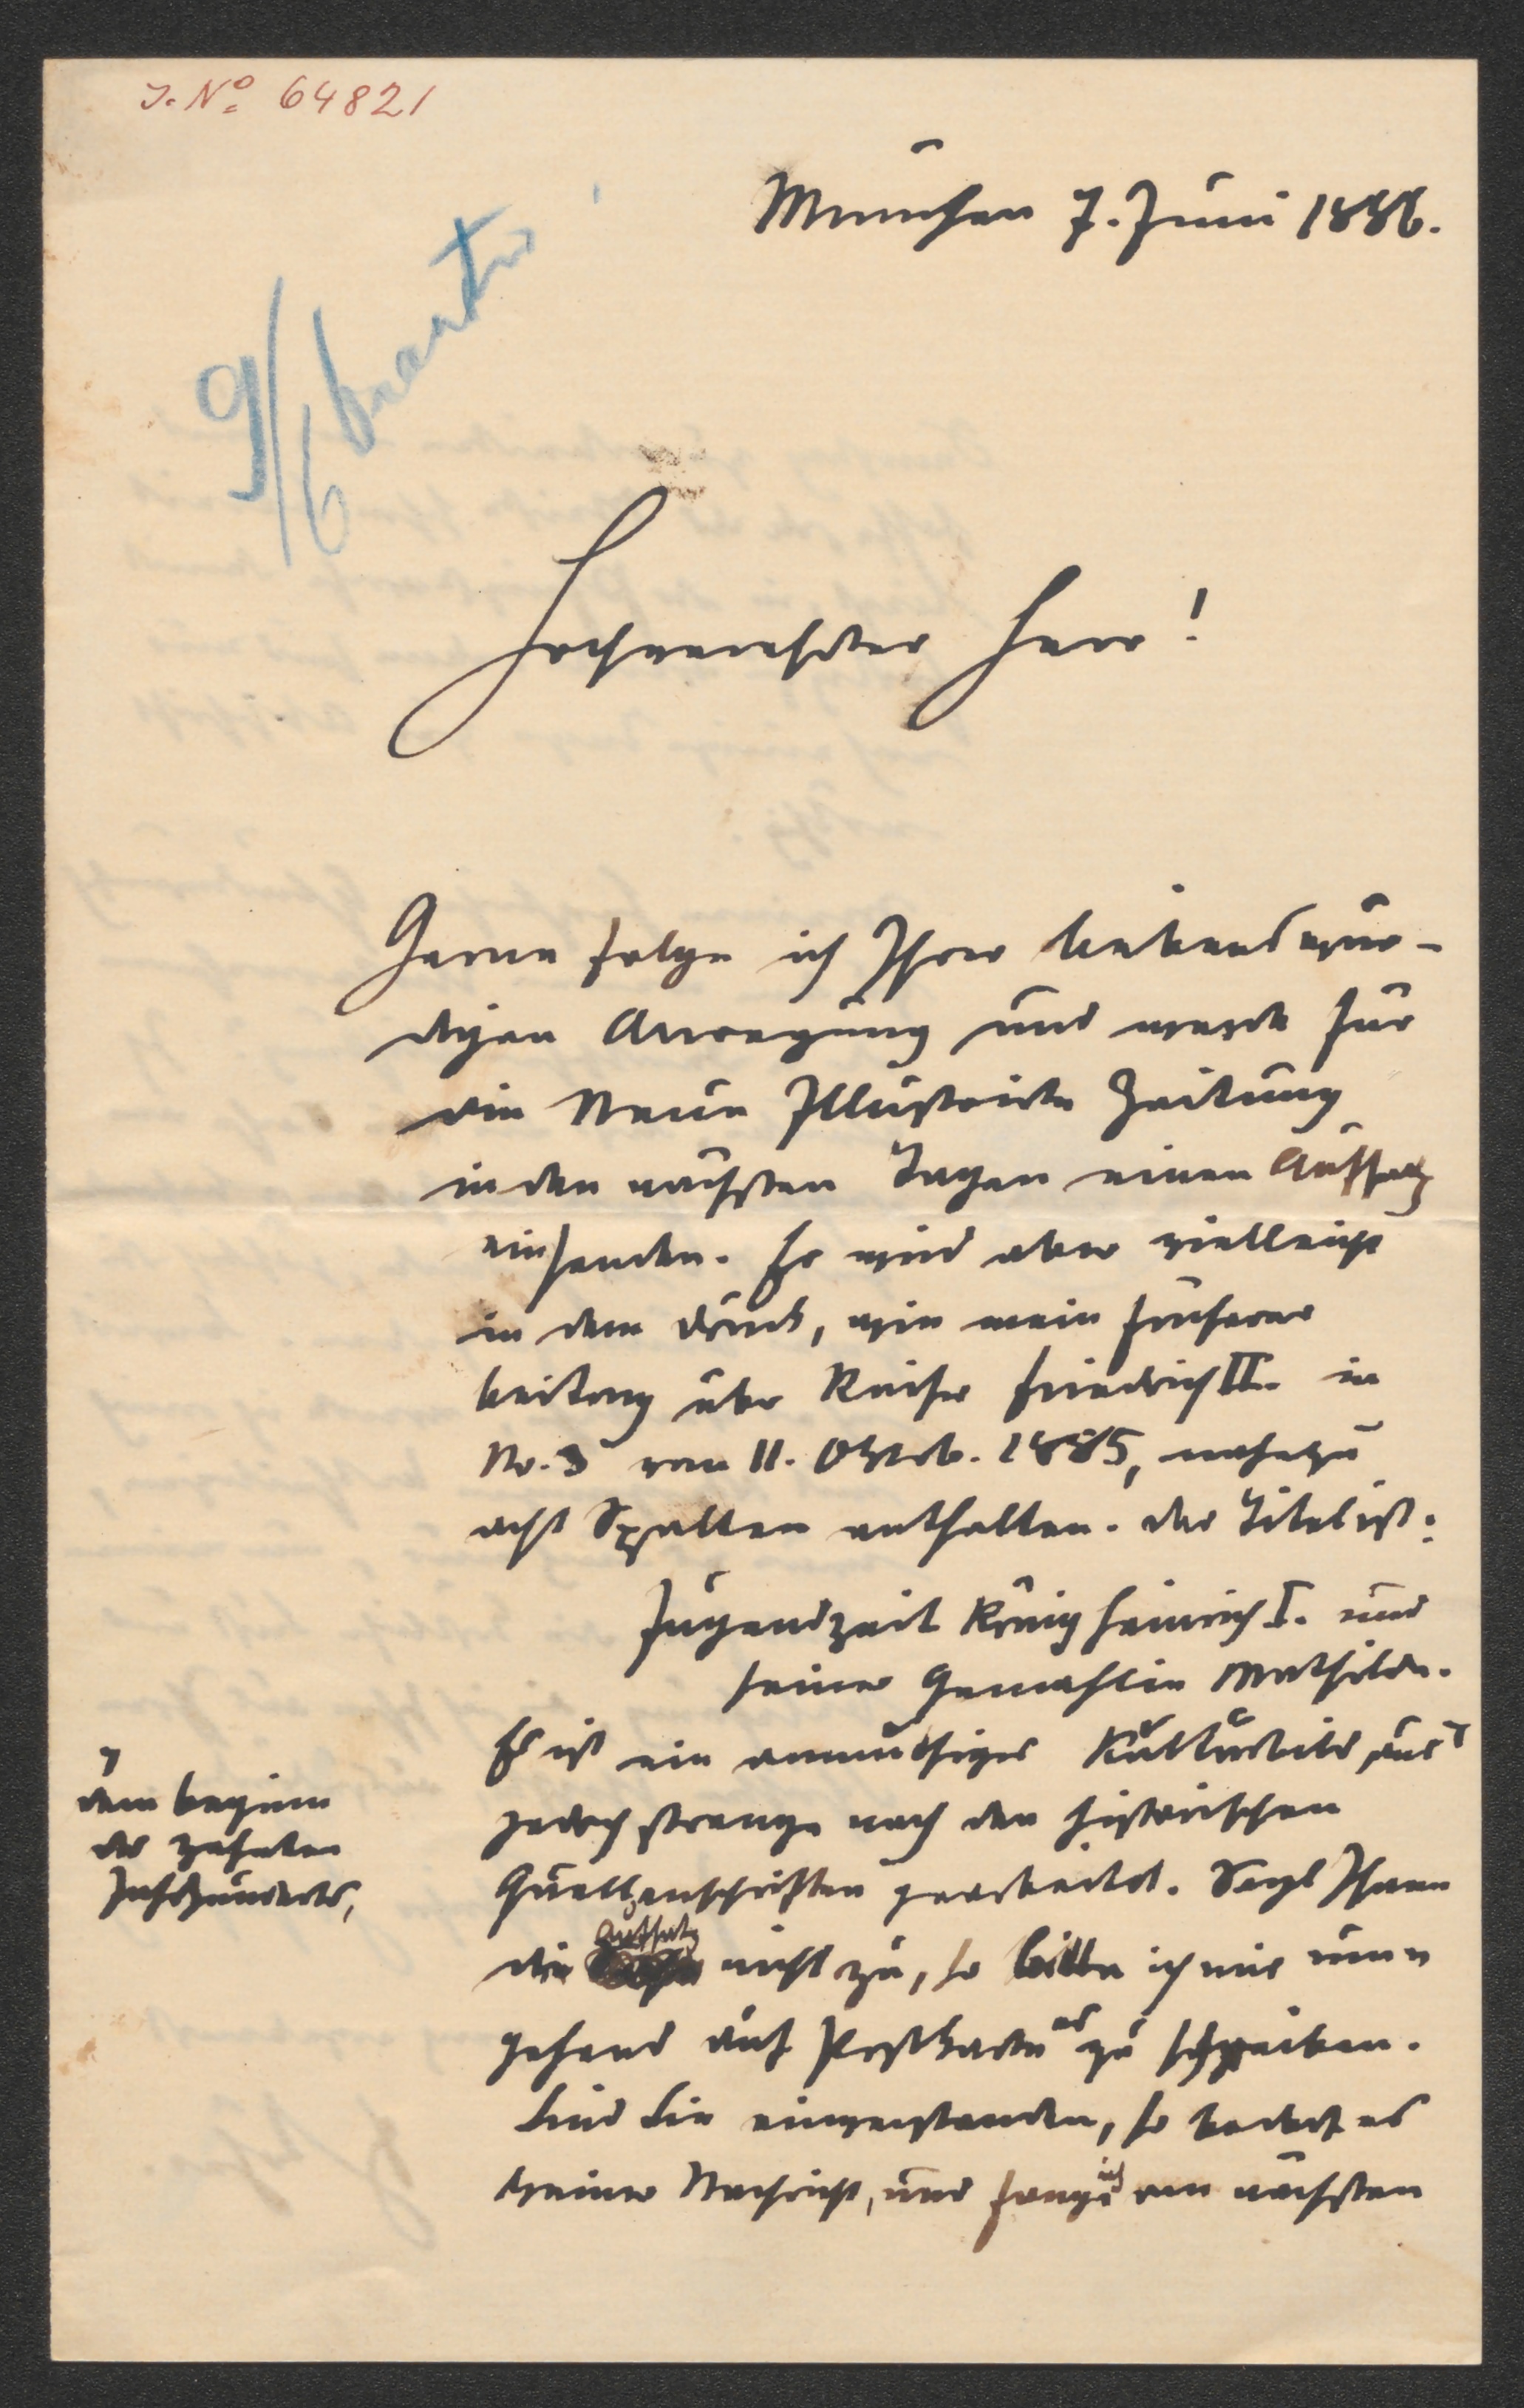 J. No. 64821
München 7. Juni 1886.
9/6 beantw
Hochverehrter Herr!
Gerne folge ich Ihrer liebenswür-
digen Anregung und werde für
die Neue Illustrirte Zeitung
in den nächsten Tagen einen Aufsatz
einsenden. Er wird aber vielleicht
in dem Druck, wie mein früherer
Beitrag über Kaiser Friedrich II. in
No. 3 vom 11. Oktob. 1885, nahezu
acht Spalten enthalten. Der Titel ist:
Jugendzeit König Heinrich I. und
seiner Gemahlin Mathilde.
Es ist ein anmuthiges Kulturbild aus
dem Beginn
des zehnten
Jahrhunderts,
jedoch strenge nach den historischen
Quellenschriften gearbeitet. Sagt Ihnen
der Aufsatz nicht zu, so bitte ich mir umn
gehend auf Postkarte es zu schreiben.
Sind Sie einverstanden, so bedarf es
keiner Nachricht, und fange ich am nächsten